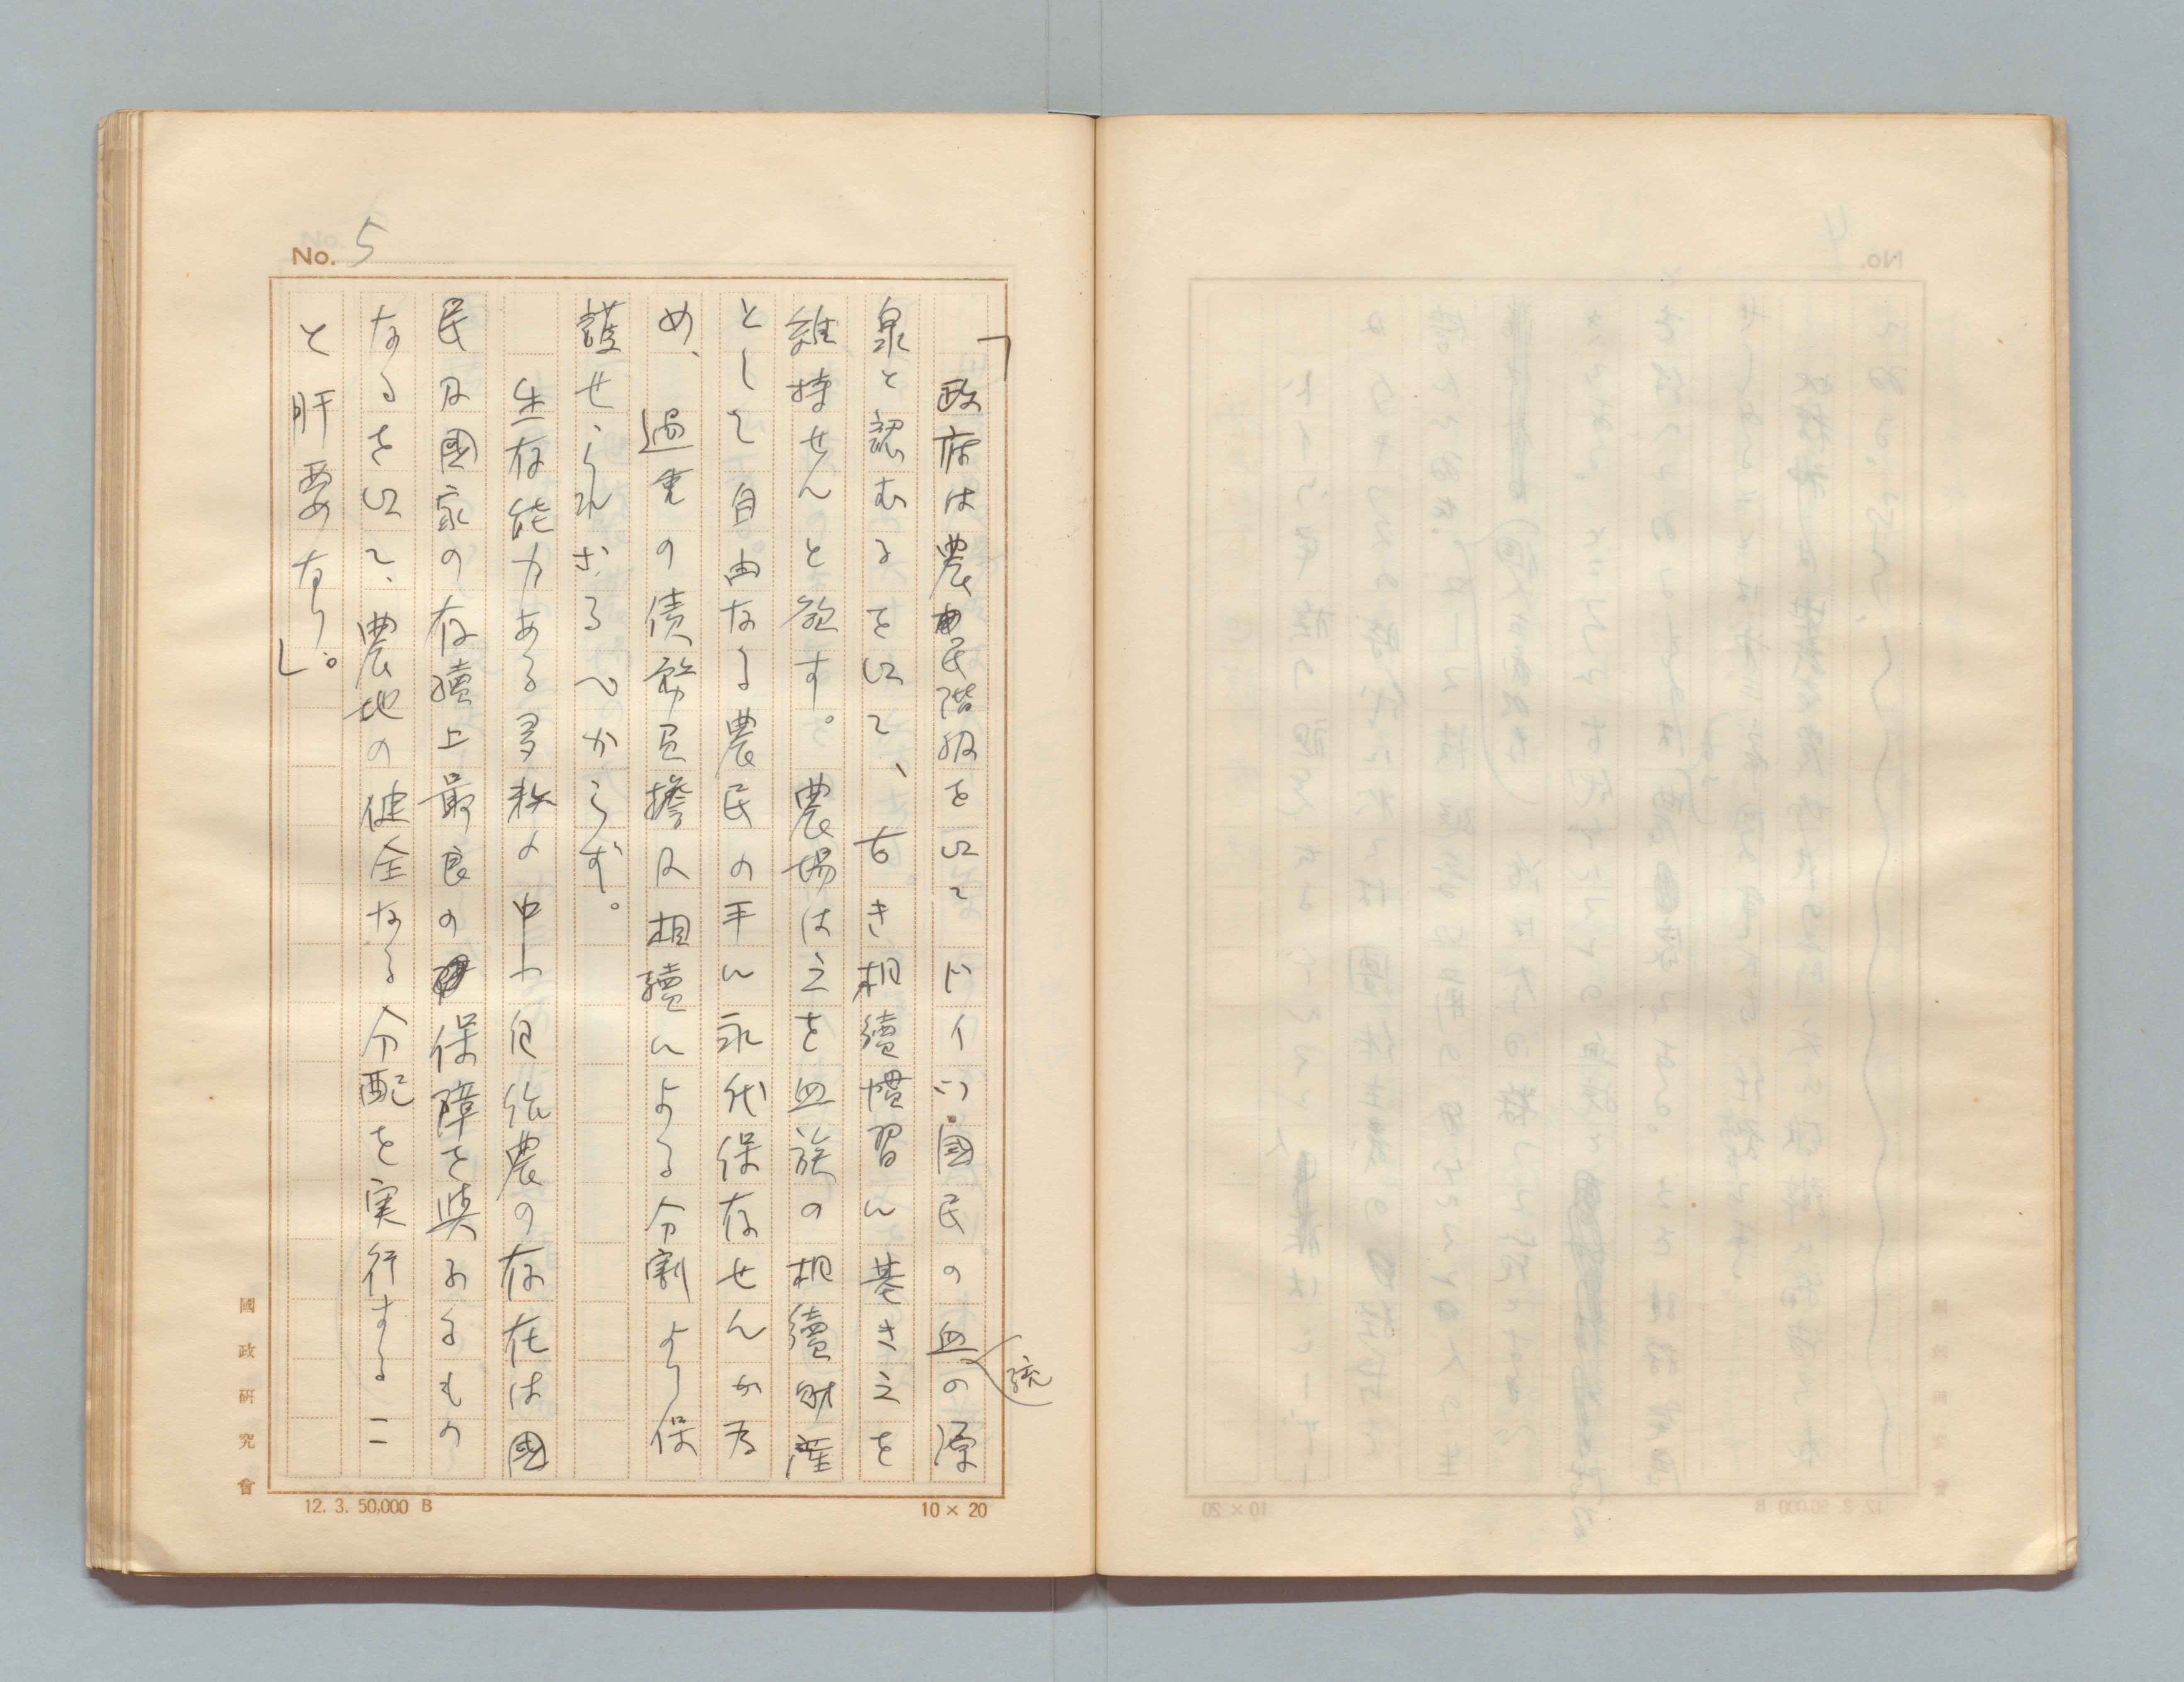 No. 5
「政府は農民階級を以てドイツ國民の血統の源
泉と認むるを以て、古き相續慣習に基き之を
維持せんと欲す。農場は之を血族の相續財産
として自由なる農民の手に永代保存せんが為
め、過重の債務負擔及相續による分割より保
護せられざるべからず。
生存能力ある多数の中小自作農の存在は國
民及國家の存續上最良の保障を與ふるもの
なるを以て、農地の健全なる分配を実行するこ
と肝要なり。」
國政研究會
12. 3. 50,000 B
10 × 20